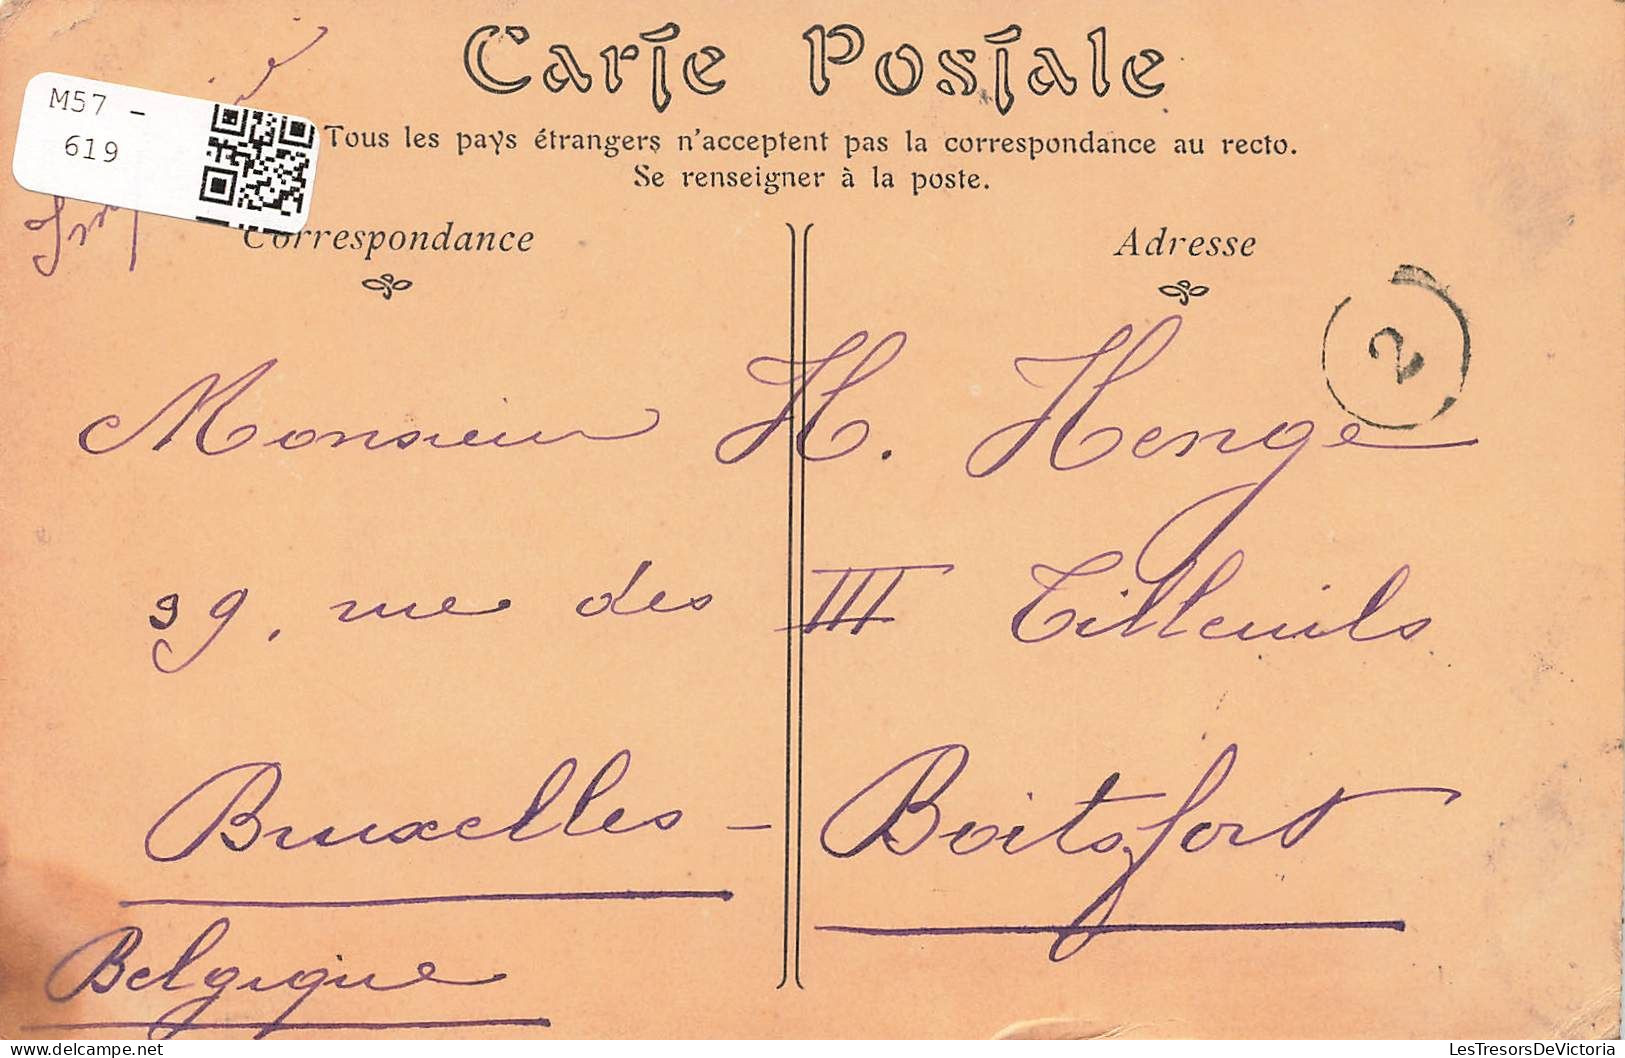 Carte Postale
M57 -
619
Tous les pays étrangers n'acceptent pas la correspondance au recto.
Se renseigner à la poste.
Correspondance
Adresse
2
Monsieur H. Henge
39, rue des III Tilleuils
Bruxelles - Boitsfort
Belgique
LesTresorsDeVictoria